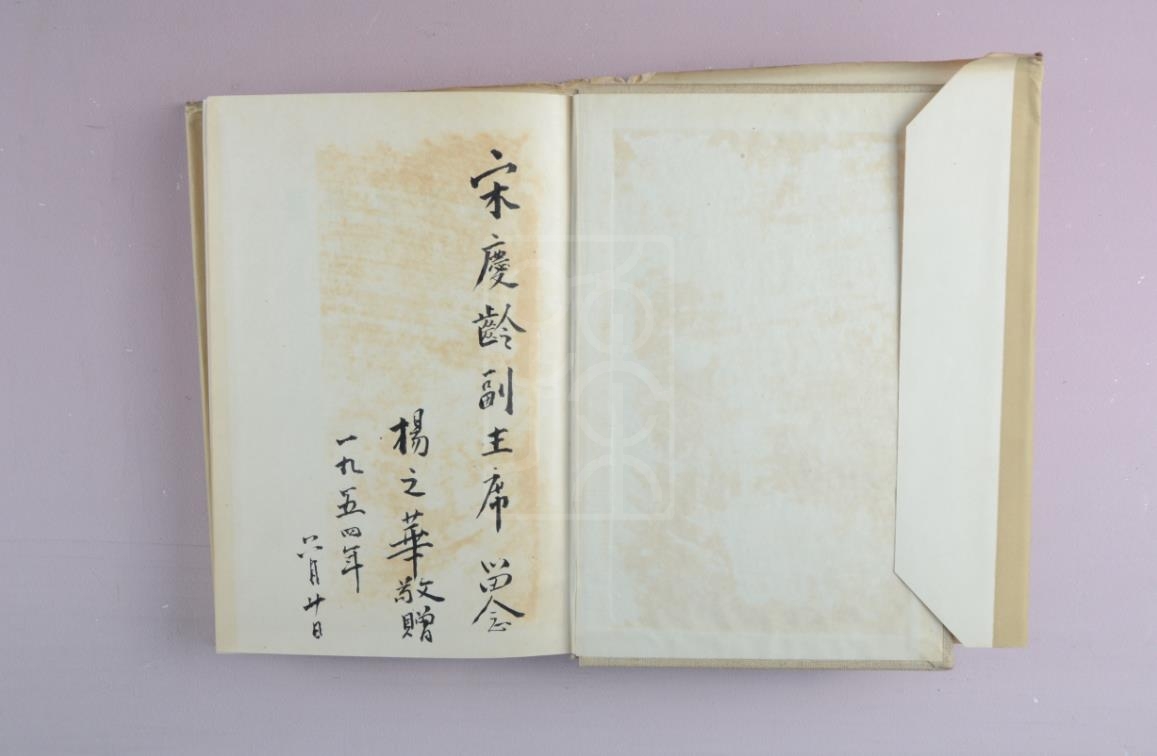 宋慶齡副主席 留念
楊之華敬贈
一九五四年
六月廿日